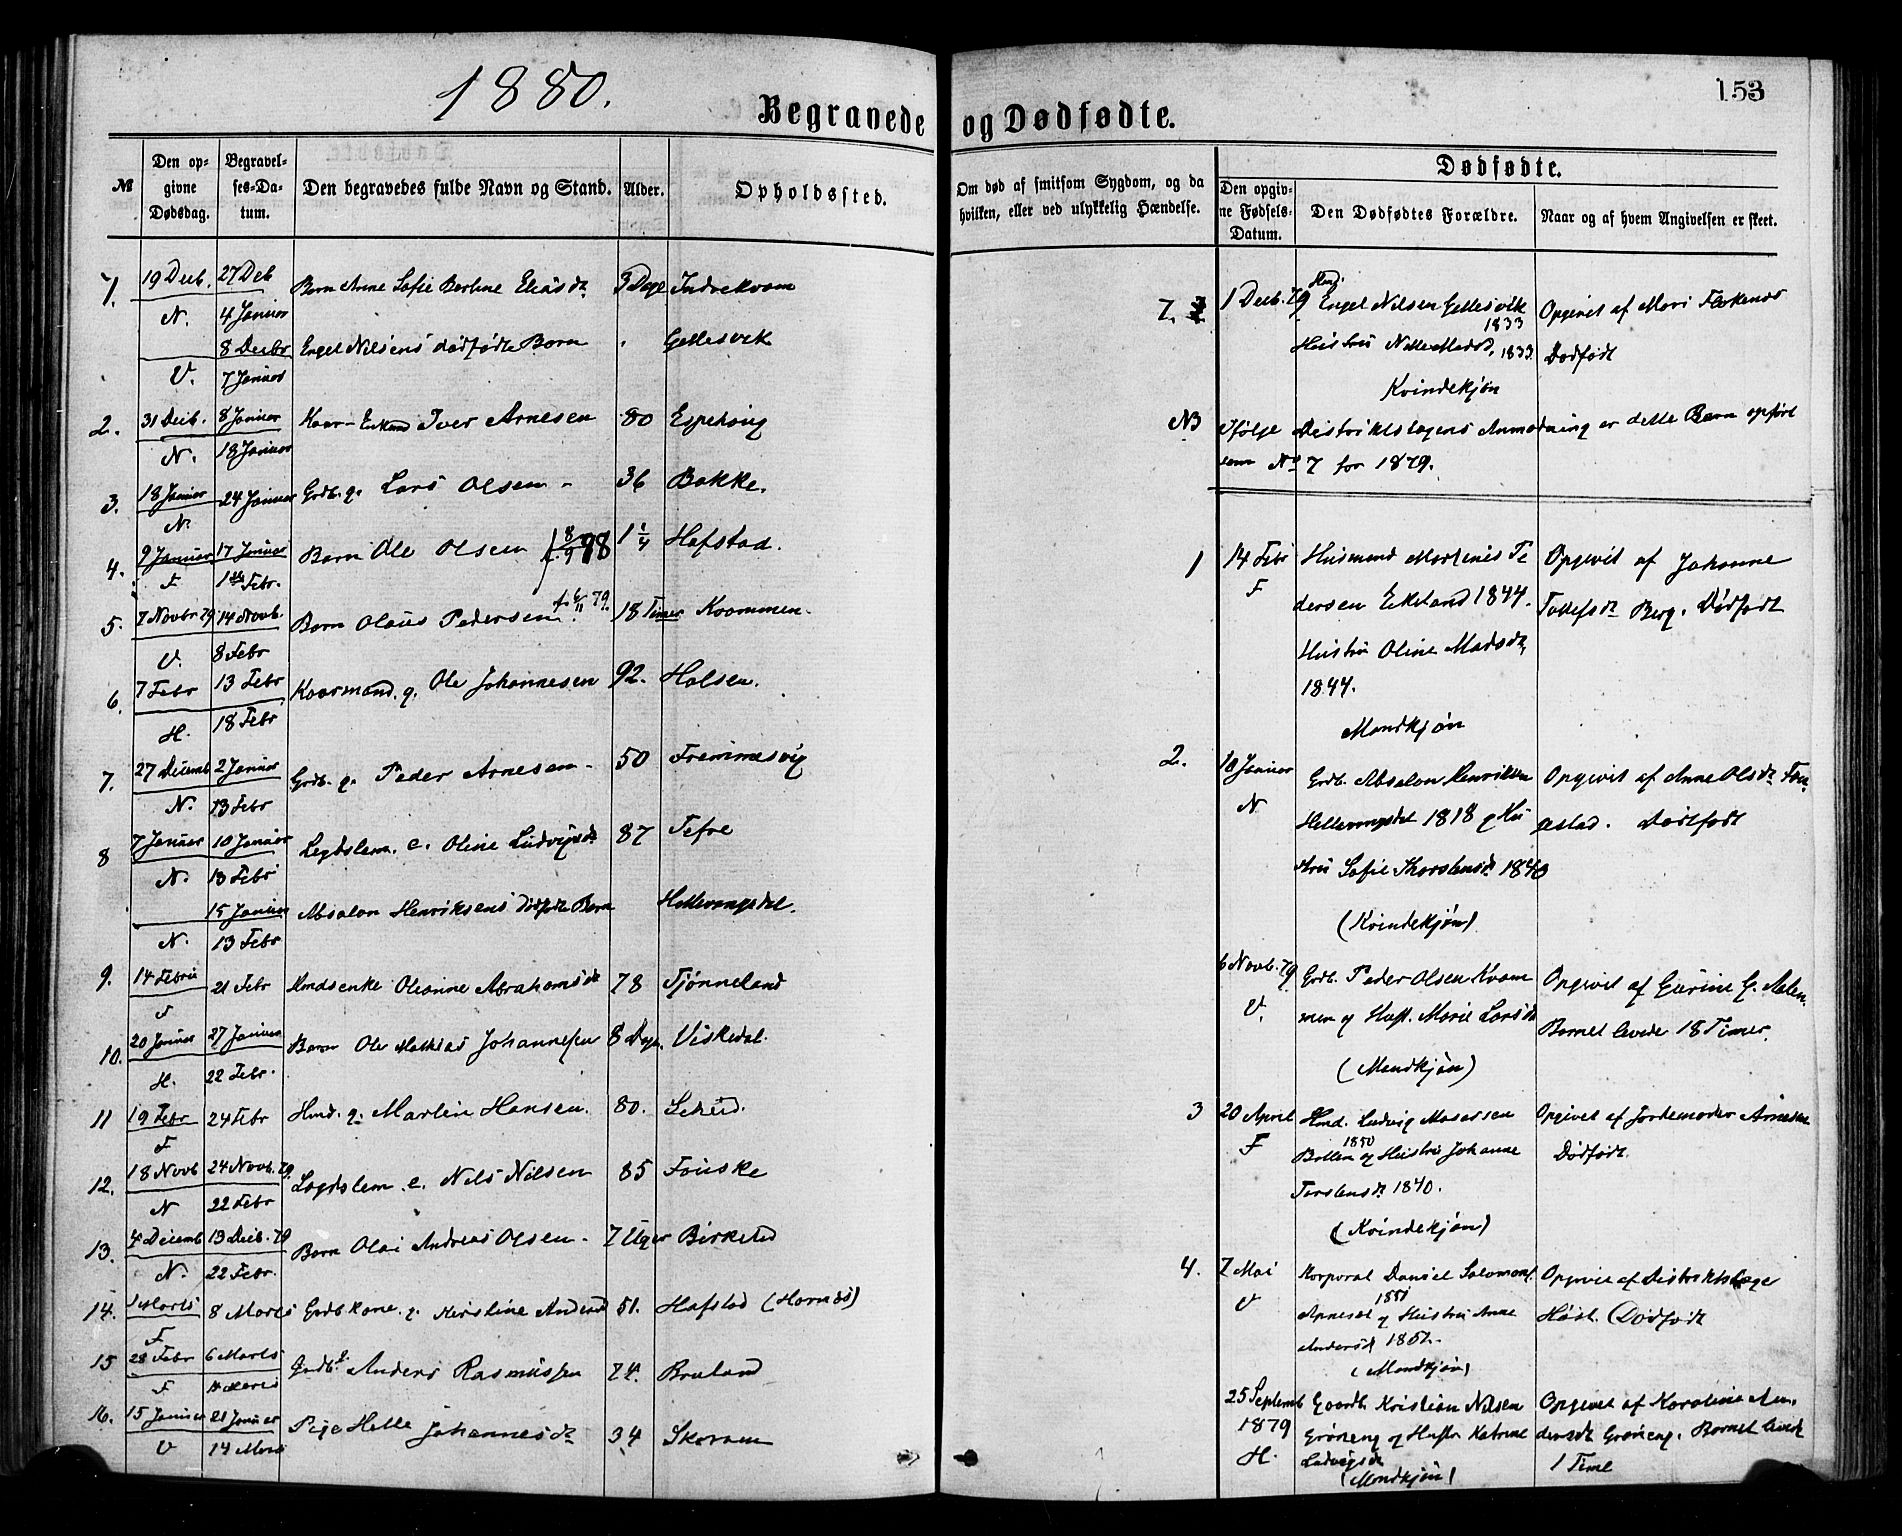 1880.
153
Begravede og Dødfødte.
№
Den opgivne Dødsdag.
Begravelses-Datum.
Den begravedes fulde Navn og Stand.
Alder.
Opholdssted.
Om død af smitsom Sygdom, og da hvilken, eller ved ulykkelig Hændelse.
Dødfødte.
Den opgivne Fødsels-Datum.
Den Dødfødtes Forældre.
Naar og af hvem Angivelsen er skeet.
1. 19 Decb. 27 Deb Barn Anne Sofie Berline Eliasdr. 3 Dage Indrekvam
N. 4 Januar
8 Decbr Engel Nilsens dødfødte Barn Gjellesvik
V. 7 Januar
2. 31 Decb. 8 Januar Kaar-Enkmd Iver Arnesen 80 Espehøug
N. 18 Januar
3. 18 Januar 24 Januar Grdb. g. Lars Olsen - 36 Bakke.
N.
4. 9 Januar 17 Januar Barn Ole Olsen f. 8/9 78 1 1/4 Hafstad.
F 1ste Febr.
5. 7 Novbr 79 14 Novb. Barn Olaus Pedersen f. 6/11 79. 18 Timer Kvammen.
V. 8 Febr
6. 7 Febr 13 Febr Kaarmand. g. Ole Johannesen 92. Holsen.
H. 18 Febr
7. 27 Decemb 2 Januar Grdb. g. Peder Arnesen - 50 Fremmesvig
N. 13 Febr
8 7 Januar 10 Januar Legdslem. e. Oline Ludvigsdr 87 Tefre
N. 13 Febr
15 Januar Absalon Henriksens dødfødte Barn Hellevangsdal.
N. 13 Febr
9. 14 Febru 21 Febr Hmdsenke Oleanne Abrahamsdr 78 Tjønneland
F
10. 20 Januar 27 Januar Barn Ole Mathias Johannessen 8 Dage. Viskedal.
H. 22 Febr.
11 19 Febr 24 Febr Hmd. g. Martin Hansen. 80.
F
12. 18 Novb 24 Novb. 79. Lægdslem. e. Nils Nilsen 85 Fauske
N 22 Febr
13. 4 Decemb 13 Decb. 79 Barn Olai Andreas Olsen - 7 Uger Birkeled
N. 22 Febr.
14. 1 Marts 8 Marts Grdb kone. g. Kirstine Andersdr 51. Hafstad (Hornæs)
F
15 28 Febr 6 Marts Grdb. g. Anders Rasmussen 74. Bruland
F Marts
16. 15 Januar 21 Januar Pige Helle Johannesdr 34 Skoraen
V 14 Mars
7. 1 Decb. 79 Hmd. Engel Nilsen Gjellesvik 1833 Opgivet af Mari Flokenæs
Hustru Nille Madsd. 1833. Dødfødt
Kvindekjøn
NB Ifølge Distriktslægens Anmodning er dette Barn opført
som No 7 for 1879.
1 14 Febr Husmand Martinus Pe Opgivet af Johanne
F dersen Eikeland 1844. Tollefsdr Berg. Dødfødt
Hustru Oline Madsdr,
1844.
Mandkjøn
2. 10 Januar Grdb. Absalon Henriksen Opgivet af Anne Olsdr. Fau
N Hellevangsdal 1818 g Hu gestad. Dødfødt
stru Sofie Thorstensdr. 1840
(Kvindekjøn)
6 Novb. 79 Grdb. Peder Olsen Kvam Opgivet af Gurine G. Aalen.
V. men g Hust. Marie Larsdr Barnet levede 18 Timer.
(Mandkjøn)
3 20 April Hmd. Ludvig Mosessen Opgivet af Jordemoder Arnesen
F 1850 og Hustru Johanne Dødfødt.
Torstensdr 1840.
(Kvindekjøn)
4. 7 Mai Korporal Daniel Salomons. Opgivet af Distriktslæge
V Apnesæt 1851 g Hustru Anne Høst. (Dødfødt
Andersd 1852.
(Mandkjøn)
25 Septemb Gaardb. Kristian Nilsen Opgivet af Karoline An
1879 Grøneng og Hustr Katrine dersdt Grøneng. Barnet levede
H. Ludvigsdr 1 Time
(Mandkjøn)